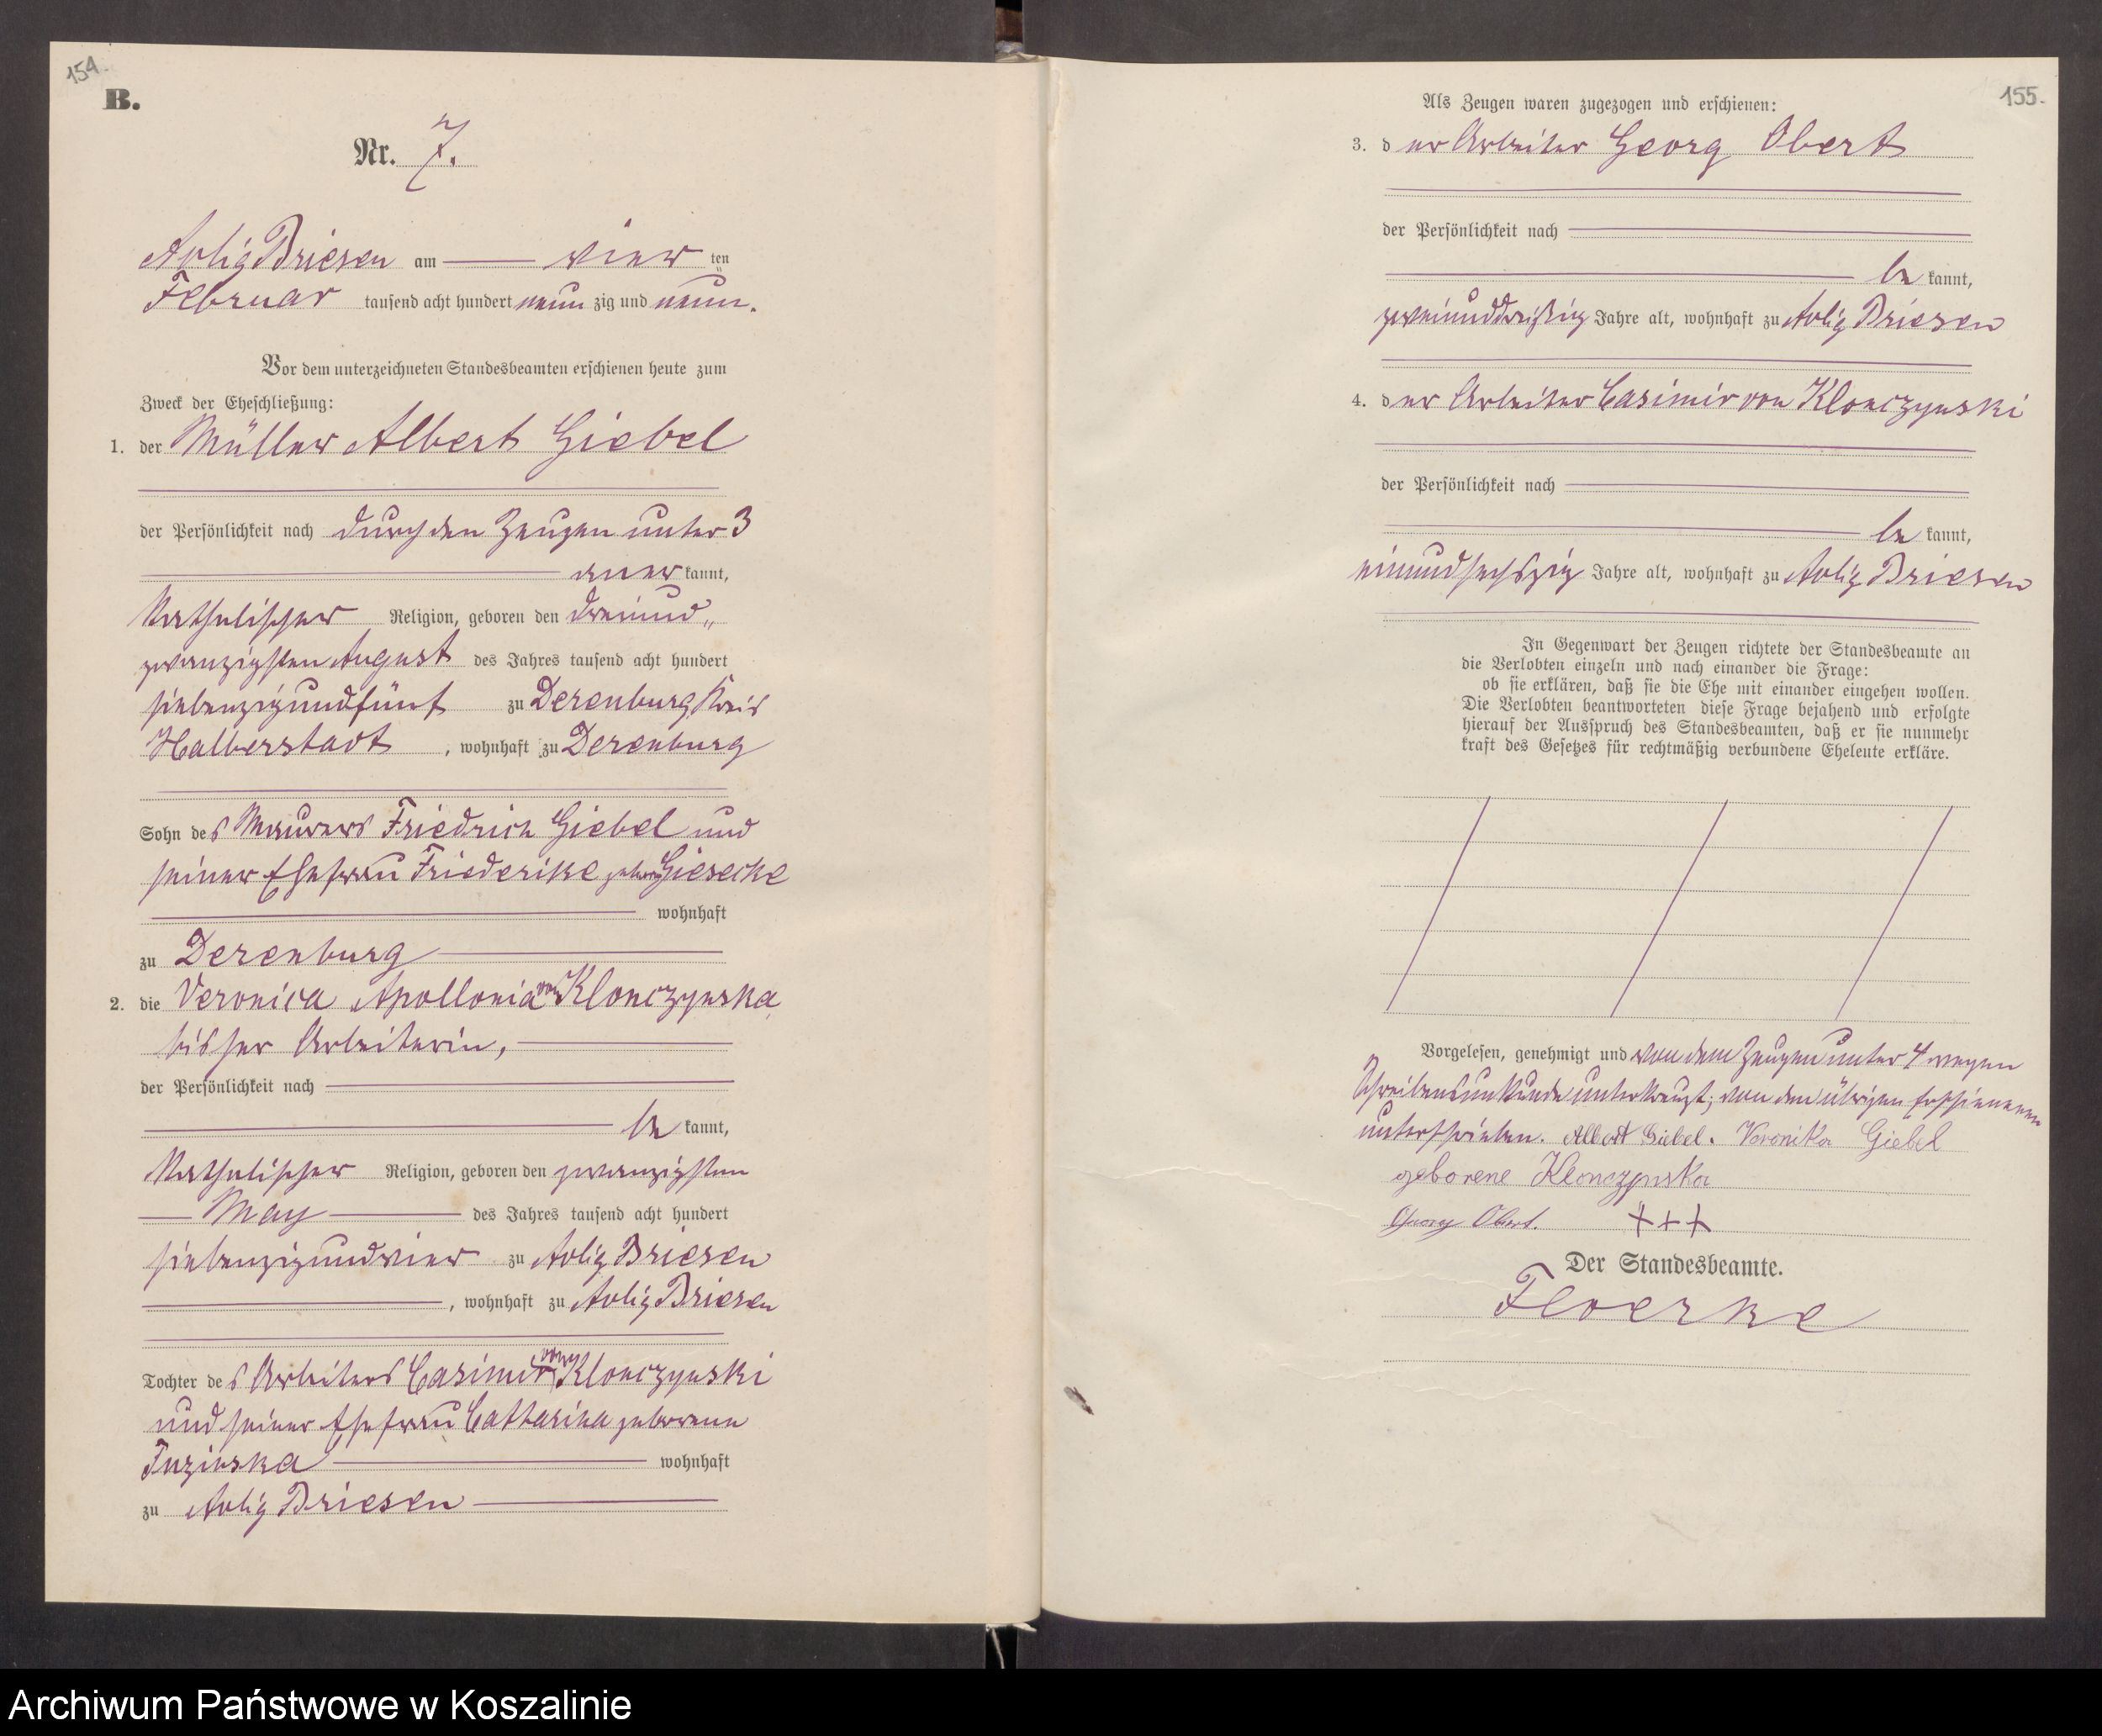 154.
B.
Nr. 7.
Adlig Briesen am vier ten
Februar tausend acht hundert neun zig und neun.
Vor dem unterzeichneten Standesbeamten erschienen heute zum
Zweck der Eheschließung:
1. der Müller Albert Giebel
der Persönlichkeit nach durch den Zeugen unter 3
aner kannt,
katholischer Religion, geboren den dreiund„
zwanzigsten August des Jahres tausend acht hundert
siebenzigundfünf zu Derenburg, Kreis
Halberstadt, wohnhaft zu Derenburg
Sohn des Maurers Friedrich Giebel und
seiner Ehefrau Friederike geborene Giesecke
wohnhaft
zu Derenburg
2. die Veronica Apollonia von Klonczynska,
bisher Arbeiterin,
der Persönlichkeit nach
be kannt,
katholischer Religion, geboren den zwanzigsten
May des Jahres tausend acht hundert
siebenzigundvier zu Adlig Briesen
, wohnhaft zu Adlig Briesen
Tochter des Arbeiters Casimir von Klonczynski
und seiner Ehefrau Catharina geborene
wohnhaft
zu Adlig Briesen
155.
Als Zeugen waren zugezogen und erschienen:
3. der Arbeiter Georg Obert
der Persönlichkeit nach
be kannt,
zweiunddreißig Jahre alt, wohnhaft zu Adlig Briesen
4. der Arbeiter Casimir von Klonczynski
der Persönlichkeit nach
be kannt,
einundsechszig Jahre alt, wohnhaft zu Adlig Briesen
In Gegenwart der Zeugen richtete der Standesbeamte an
die Verlobten einzeln und nach einander die Frage:
ob sie erklären, daß sie die Ehe mit einander eingehen wollen.
Die Verlobten beantworteten diese Frage bejahend und erfolgte
hierauf der Ausspruch des Standesbeamten, daß er sie nunmehr
kraft des Gesetzes für rechtmäßig verbundene Eheleute erkläre.
Vorgelesen, genehmigt und von dem Zeugen unter 4 wegen
Schreibensunkunde unterkreuzt, von den übrigen Erschienenen
unterschrieben. Albert Giebel. Veronika Giebel
geborene Klonczynska
Georg Obert. +++
Der Standesbeamte.
Floerke
Archiwum Państwowe w Koszalinie